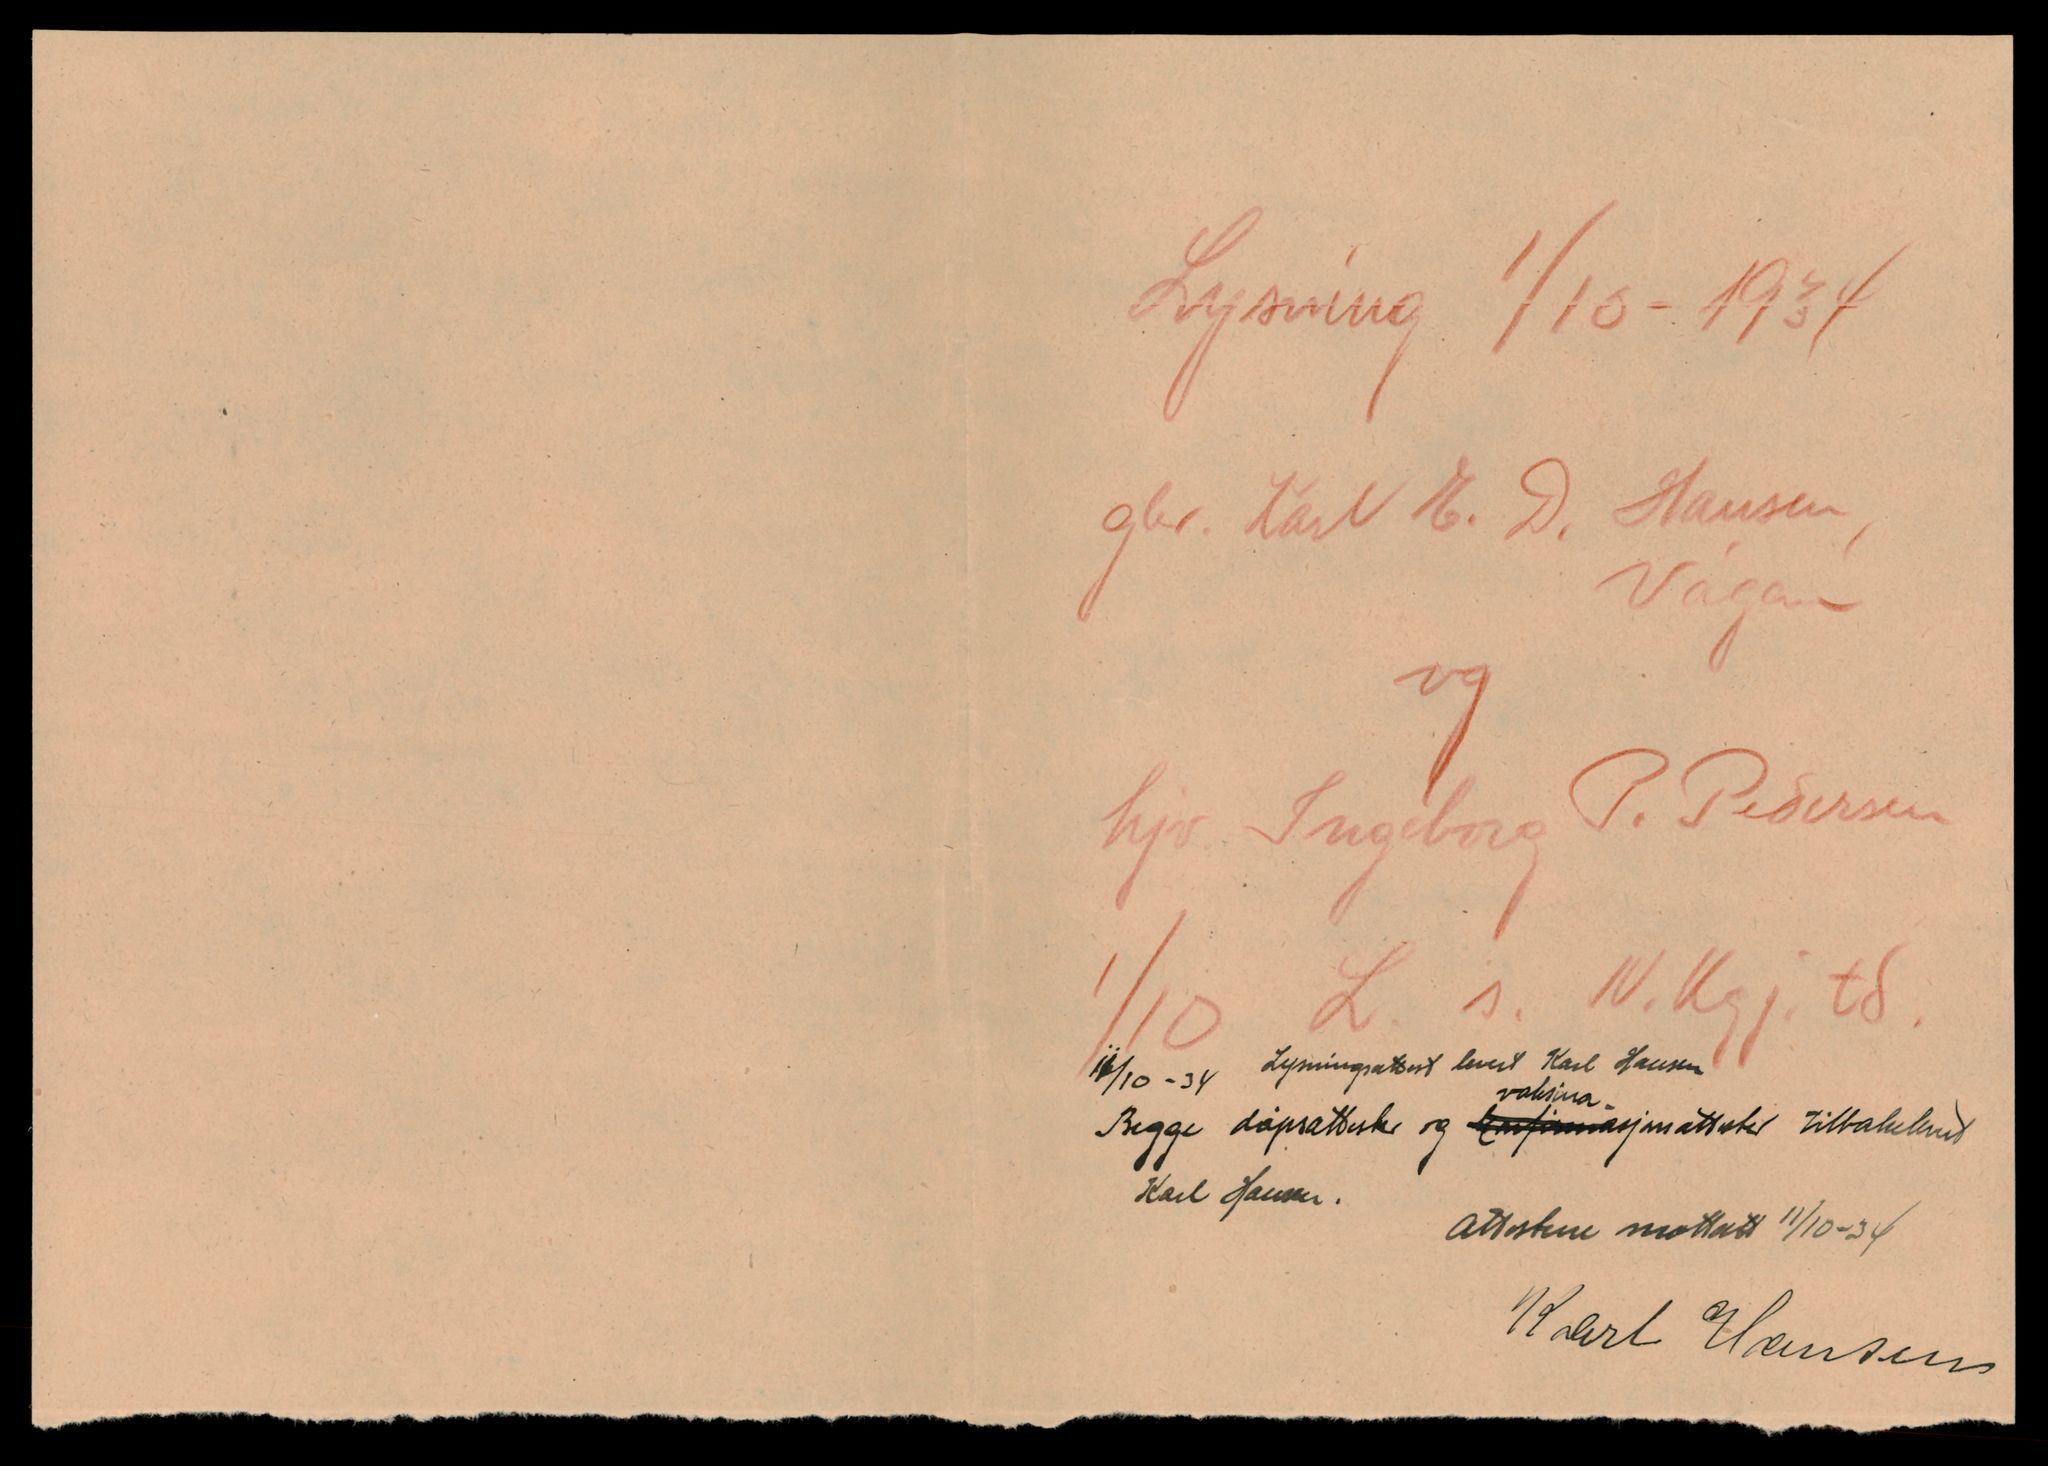 Lysning 1/10 - 1934
gbr. Karl E. D. Hansen,
Vågan
og
hjv. Ingeborg P. Pedersen
1/10 L. s. N. Kgj. td.
11/10 - 34 Lysningsattest levert Karl Hansen
vaksina-
Begge dåpsattester og konfirmasjonsattester tilbakelevert
Karl Hansen.
Attestene mottatt 11/10-34
Karl Hansen